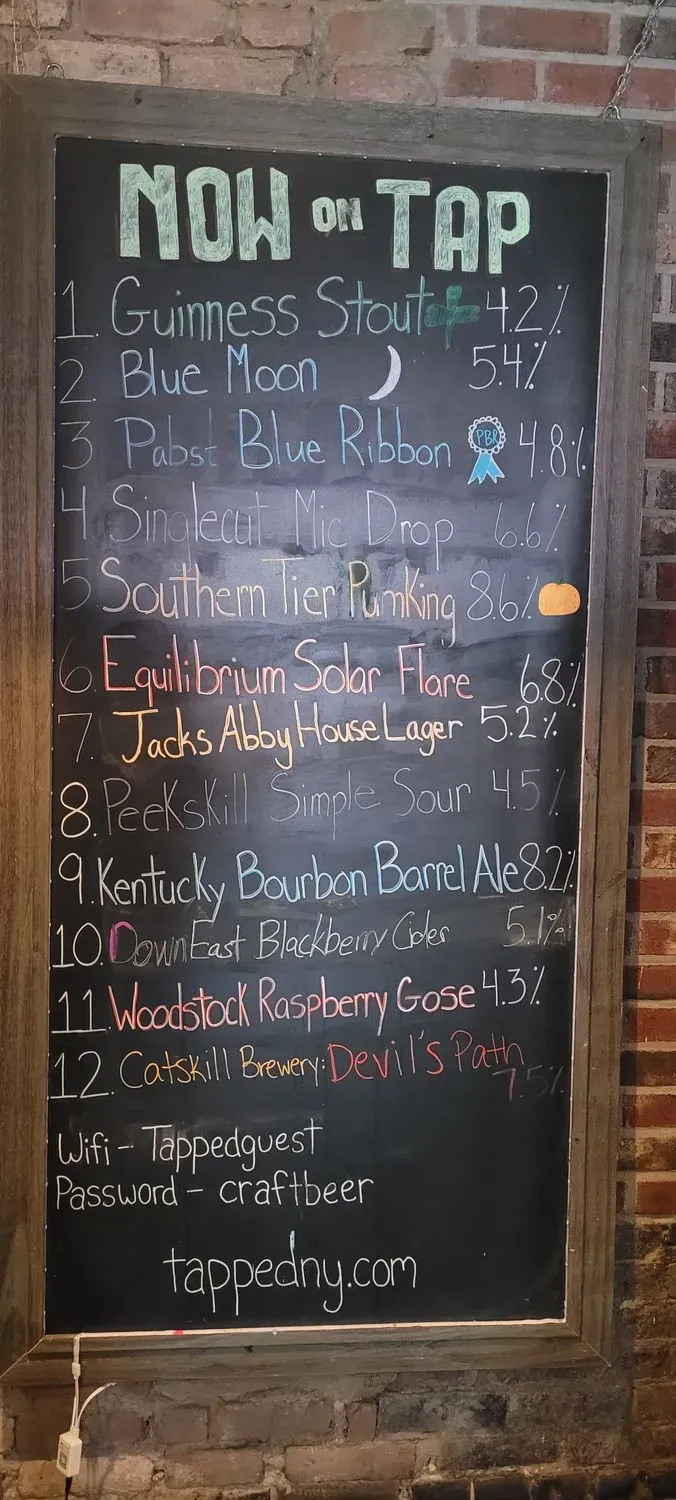 NOW ON TAP
1. Guinness Stout 4.2%
2. Blue Moon 5.4%
3 Pabst Blue Ribbon PBR 4.8%
4 Singlecut Mic Drop 6.6%
5 Southern Tier PumKing 8.6%
6. Equilibrium Solar Flare 6.8%
7. Jacks Abby House Lager 5.2%
8. PeeKsKill Simple Sour 4.5%
9. Kentucky Bourbon Barrel Ale 8.2%
10. DownEast Blackberry Cider 5.1%
11. Woodstock Raspberry Gose 4.3%
12. Catskill Brewery: Devil's Path
7.5%
Wifi - Tappedguest
Password - craftbeer
tappedny.com